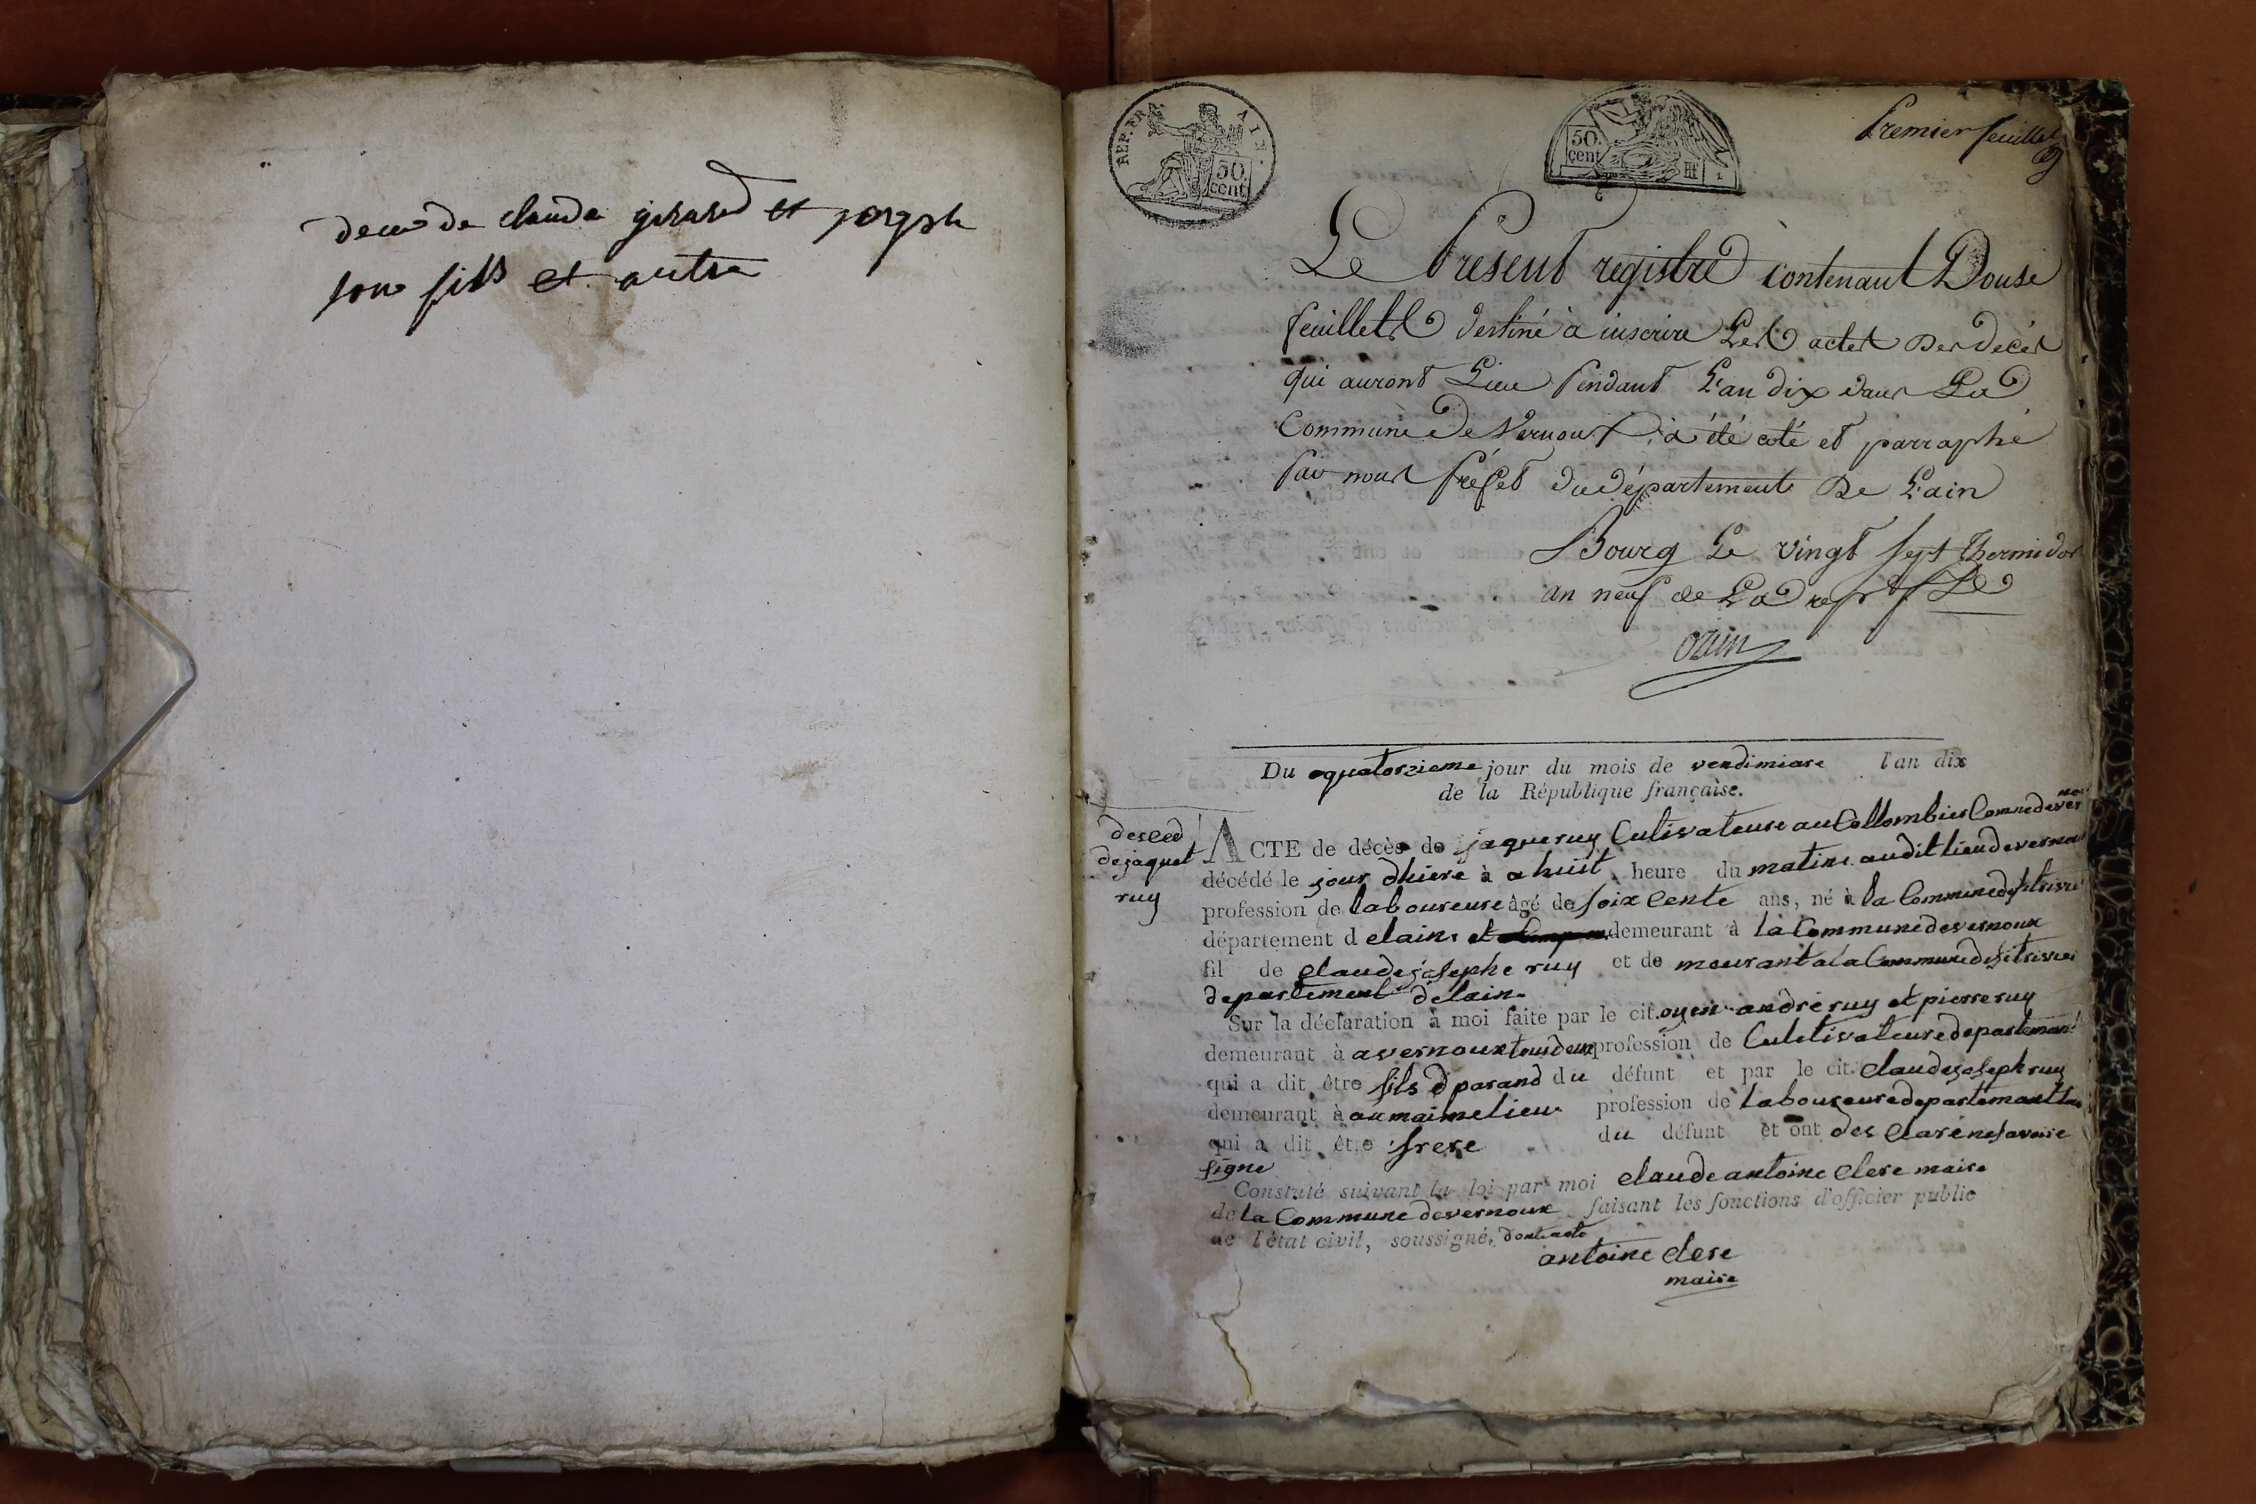 deces de claude girard et joseph
son fils et autre
REP. FRA
50.
cent
50.
cent
Premier feuillet
Le Present registre contenant Douse
feuillets destiné à inscrire Les actes Des decés
qui auront Lieu Pendant L'an dix dans La
Commune De Vernoux, a été coté et parraphé
Par nous Préfet du département De L'ain
Bourg Le vingt sept thermidor
an neuf de La rep. fse
ozun
Du quatorzieme jour du mois de vendimiare l'an dix
de la République française.
desced
de jaquet
ruy
ACTE de décès de jaque ruy Cultivateure au Collombier Comne de ver
noux
décédé le jour dhiere à a huit heure du matine audit lieu de vernou
profession de laboureure âgé de soixcente ans, né à la Commune de
département d elain et demeurant à la Commune de vernoux
fil de claude josephe ruy et de meurant a la Commune de
departement delain
Sur la déclaration à moi faite par le cit.oyen andré ruy et pierre ruy
demeurant à a vernoux tous deux profession de Cultivateure departemant
qui a dit être fils d parand du défunt et par le cit. claude joseph ruy
demeurant à au maime lieu profession de laboureure departemant
qui a dit être frere du défunt et ont des clare ne savoire
signe
Constaté suivant la loi par moi claude antoine clere maire
de la Commune de vernoux faisant les fonctions d'officier public
de l'état civil, soussigné, dont acte
antoine clere
maire